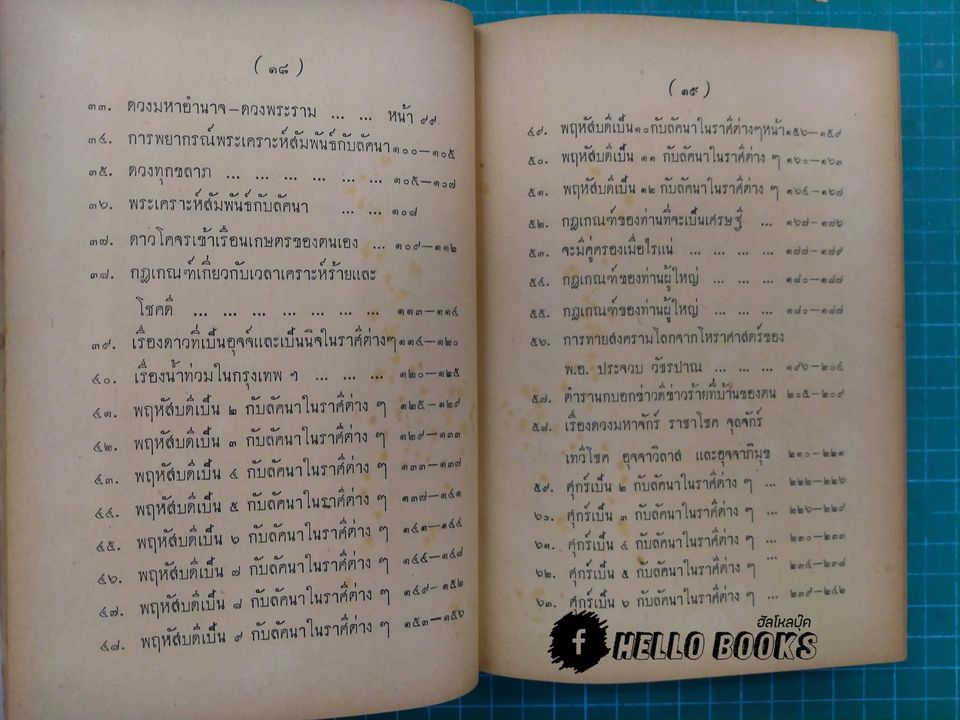 ( ๑๘ )
๓๓. ดวงมหาอำนาจ–ดวงพระราม ... ... หน้า ๙๙
๓๔. การพยากรณ์พระเคราะห์สัมพันธ์กับลัคนา ๑๐๐–๑๐๕
๓๕. ดวงทุกขลาภ ... ... ... ... ... ... ๑๐๕–๑๐๗
๓๖. พระเคราะห์สัมพันธ์กับลัคนา ... ... ๑๐๘
๓๗. ดาวโคจรเข้าเรือนเกษตรของตนเอง ... ๑๐๙–๑๑๒
๓๘. กฎเกณฑ์เกี่ยวกับเวลาเคราะห์ร้ายและ
โชคดี ... ... ... ... ... ... ... ๑๑๓–๑๑๔
๓๙. เรื่องดาวที่เป็นอุจจ์และเป็นนิจในราศีต่างๆ ๑๑๔–๑๒๐
๔๐. เรื่องน้ำท่วมในกรุงเทพ ฯ ... ... ... ๑๒๐–๑๒๕
๔๑. พฤหัสบดีเป็น ๒ กับลัคนาในราศีต่าง ๆ ๑๒๕–๑๒๙
๔๒. พฤหัสบดีเป็น ๓ กับลัคนาในราศีต่าง ๆ ๑๒๙–๑๓๓
๔๓. พฤหัสบดีเป็น ๔ กับลัคนาในราศีต่าง ๆ ๑๓๓–๑๓๗
๔๔. พฤหัสบดีเป็น ๕ กับลัคนาในราศีต่าง ๆ ๑๓๗–๑๔๑
๔๕. พฤหัสบดีเป็น ๖ กับลัคนาในราศีต่าง ๆ ๑๔๑–๑๔๔
๔๖. พฤหัสบดีเป็น ๗ กับลัคนาในราศีต่าง ๆ ๑๔๔–๑๔๘
๔๗. พฤหัสบดีเป็น ๘ กับลัคนาในราศีต่าง ๆ ๑๔๙–๑๕๒
๔๘. พฤหัสบดีเป็น ๙ กับลัคนาในราศีต่าง ๆ ๑๕๓–๑๕๖
( ๑๙ )
๔๙. พฤหัสบดีเป็น๑๐กับลัคนาในราศีต่างๆหน้า๑๕๖–๑๕๙
๕๐. พฤหัสบดีเป็น ๑๑ กับลัคนาในราศีต่าง ๆ ๑๖๐–๑๖๓
๕๑. พฤหัสบดีเป็น ๑๒ กับลัคนาในราศีต่าง ๆ ๑๖๔–๑๖๗
๕๒. กฎเกณฑ์ของท่านที่จะเป็นเศรษฐี ...
๕๓. จะมีคู่ครองเมื่อไรแน่ ... ... ... ...
๕๔. กฎเกณฑ์ของท่านผู้ใหญ่ ... ... ...
๕๕. กฎเกณฑ์ของท่านผู้ใหญ่ ... ... ...
๕๖. การทายสงครามโลกจากโหราศาสตร์ของ
พ.อ. ประจวบ วัชรปาณ ... ... ... ๑๙๖–๒๐๔
๕๗. ตำรานกบอกข่าวดีข่าวร้ายที่บ้านของตน ๒๐๕–๒๐๙
๕๘. เรื่องดวงมหาจักร์ ราชาโชค จุลจักร์
เทวีโชค อุจจาวิลาส และอุจจาภิมุข ๒๑๐–๒๒๑
๕๙. ศุกร์เป็น ๒ กับลัคนาในราศีต่าง ๆ ... ๒๒๒–๒๒๖
๖๐. ศุกร์เป็น ๓ กับลัคนาในราศีต่าง ๆ ... ๒๒๖–๒๒๙
๖๑. ศุกร์เป็น ๔ กับลัคนาในราศีต่าง ๆ ... ๒๓๐–๒๓๓
๖๒. ศุกร์เป็น ๕ กับลัคนาในราศีต่าง ๆ ... ๒๓๔–๒๓๘
๖๓. ศุกร์เป็น ๖ กับลัคนาในราศีต่าง ๆ ... ๒๓๙–๒๔๒
ฮัลโหลบุ๊ค
f HELLO BOOKS